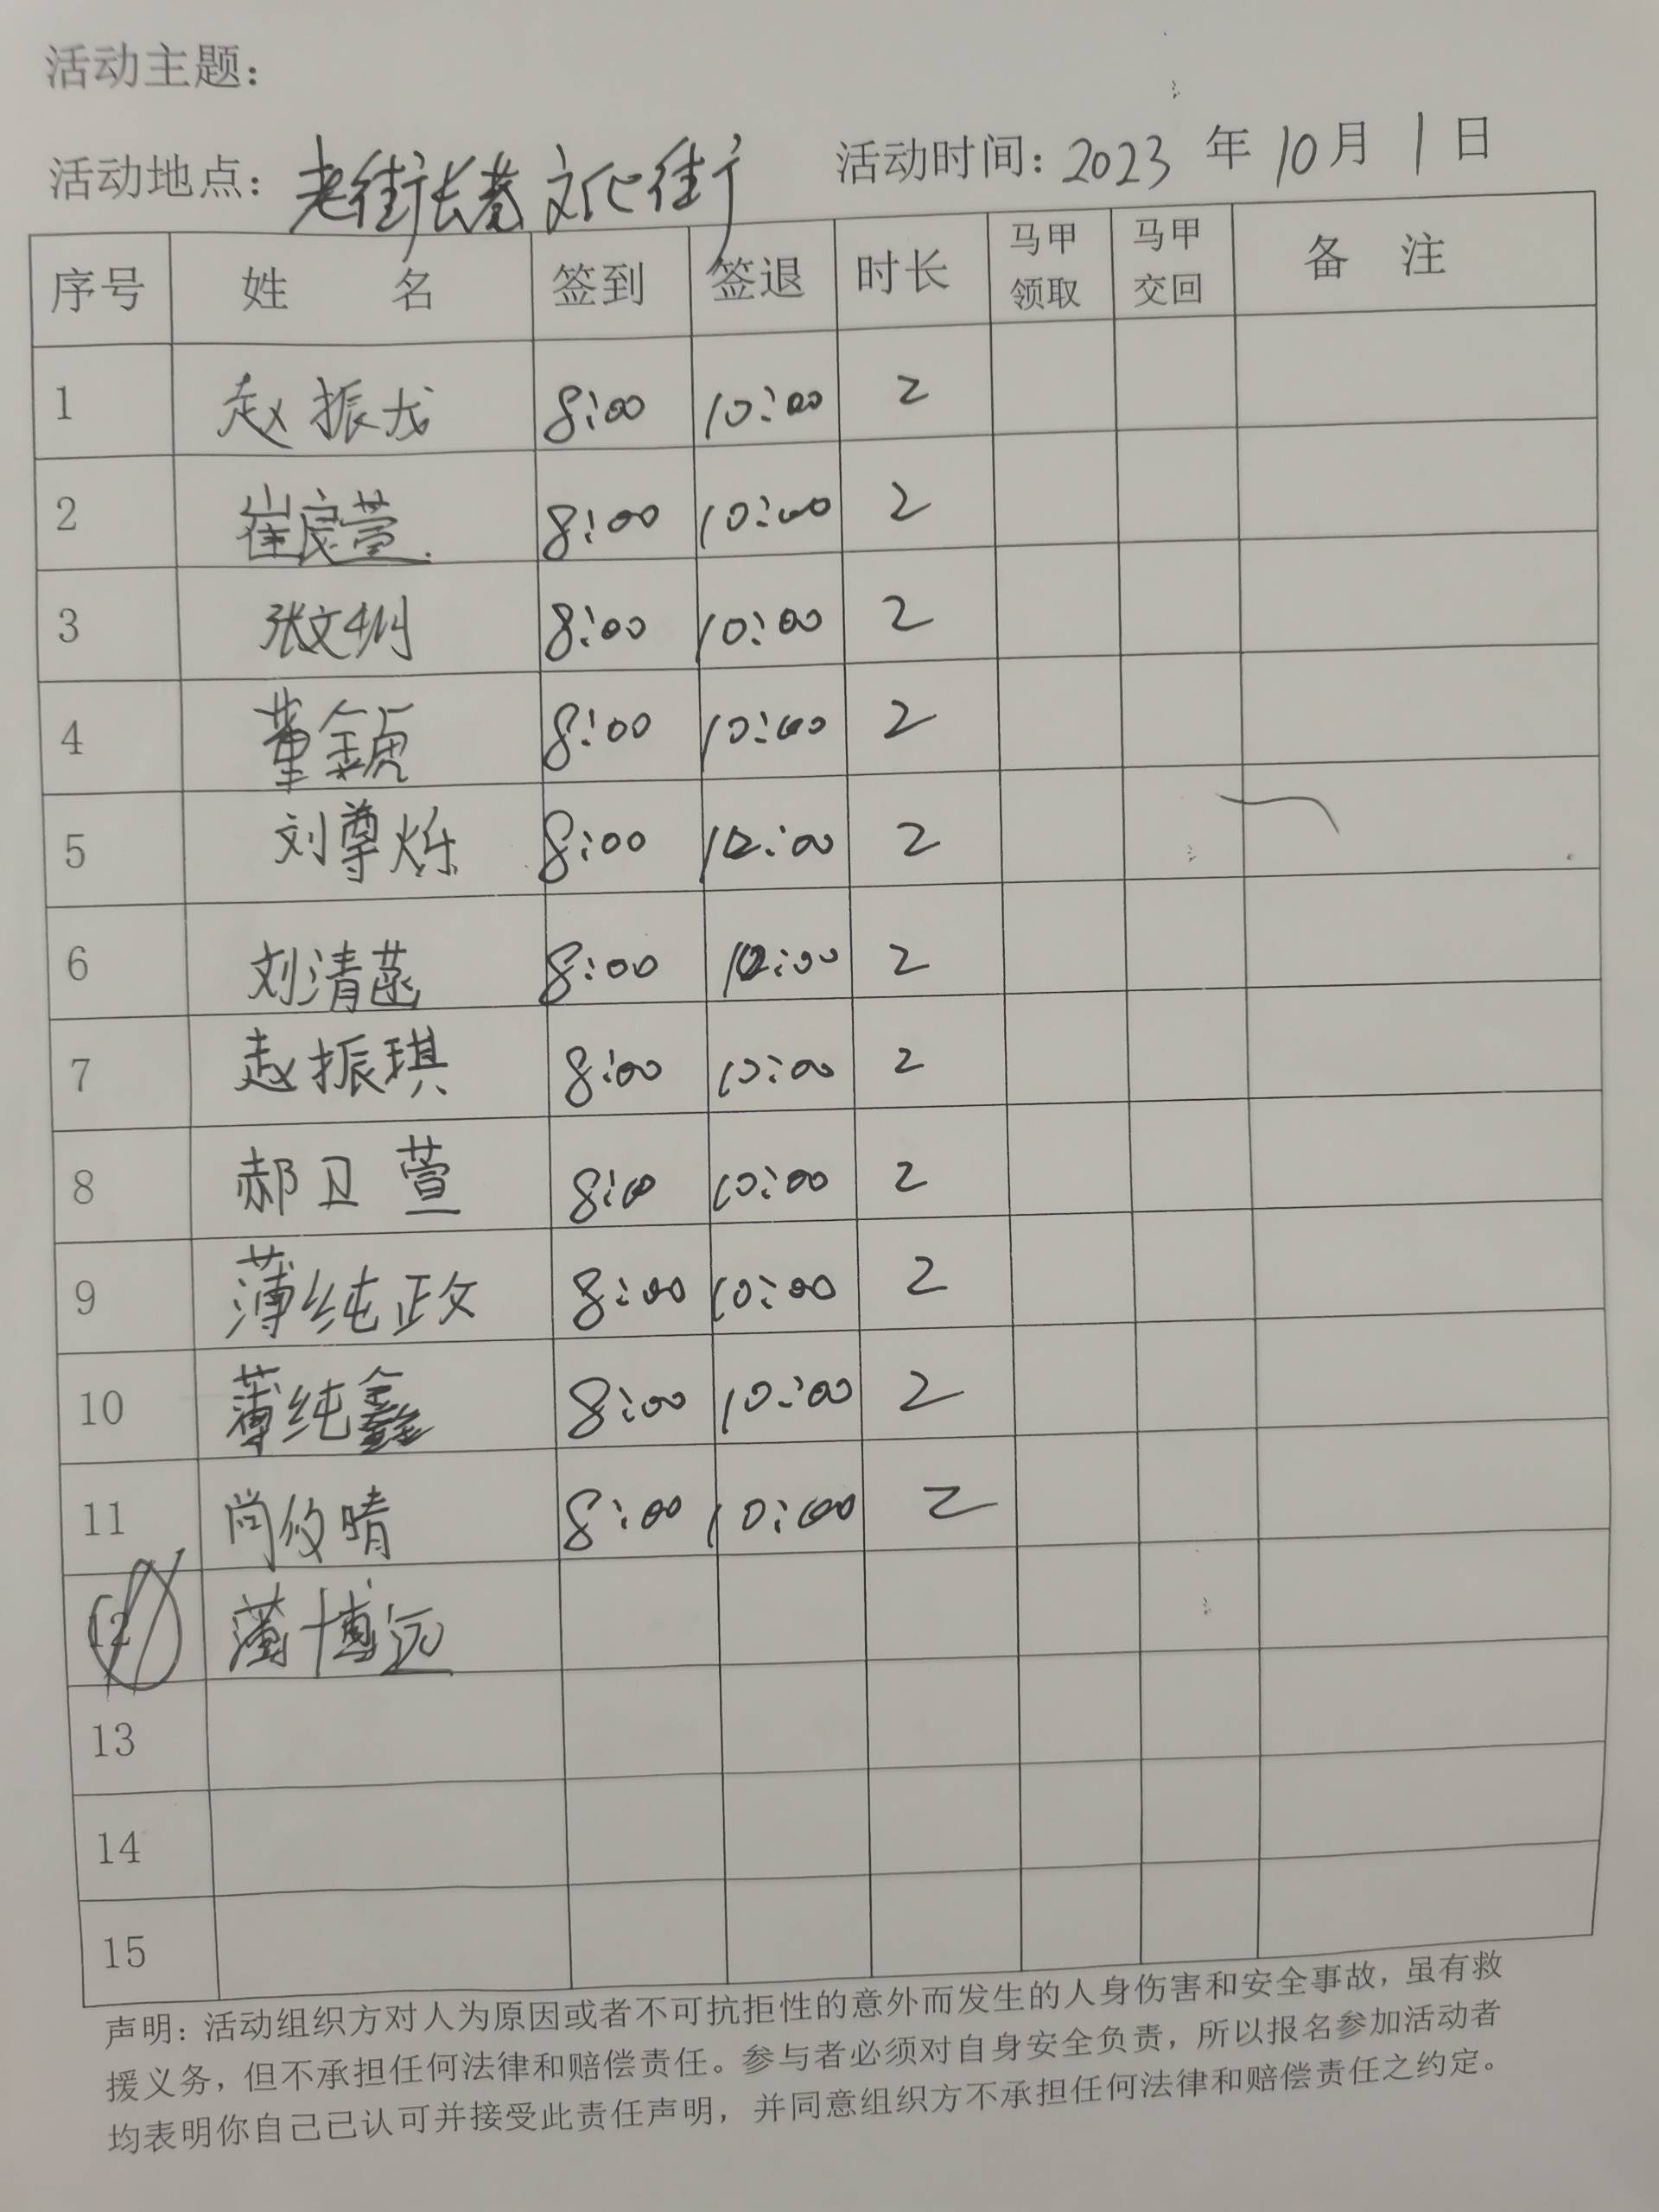 活动主题：
活动地点：老街长巷文化街 活动时间：2023 年 10 月 1 日
序号 姓 名 签到 签退 时长 马甲领取 马甲交回 备 注
1 赵振龙 8:00 10:00 2
2 崔良萱 8:00 10:00 2
3 张文 8:00 10:00 2
4 董 8:00 10:00 2
5 刘尊烁 8:00 10:00 2
6 刘清菡 8:00 10:00 2
7 赵振琪 8:00 10:00 2
8 郝卫萱 8:00 10:00 2
9 薄纯政 8:00 10:00 2
10 薄纯鑫 8:00 10:00 2
11 尚晴 8:00 10:00 2
12 博远
13
14
15
声明：活动组织方对人为原因或者不可抗拒性的意外而发生的人身伤害和安全事故，虽有救
援义务，但不承担任何法律和赔偿责任。参与者必须对自身安全负责，所以报名参加活动者
均表明你自己已认可并接受此责任声明，并同意组织方不承担任何法律和赔偿责任之约定。